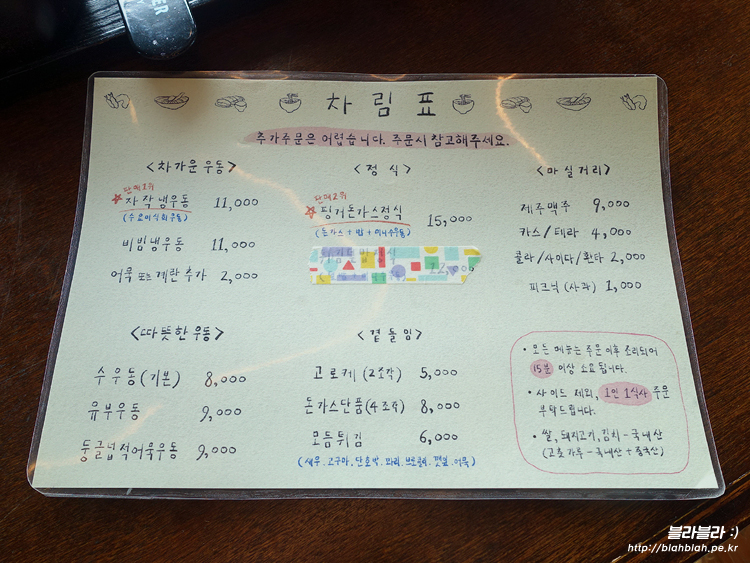 차림표
추가주문은 어렵습니다. 주문시 참고해주세요.
<차가운 우동>
판매1위
자작냉우동 11,000
비빔냉우동 11,000
어묵 또는 계란 추가 2,000
<따뜻한 우동>
수우동(기본) 8,000
유부우동 9,000
둥글넙적어묵우동 9,000
<정식>
판매2위
핑거돈가스정식 15,000
(돈가스+밥+미니수우동)
12,000
<곁들임>
고로케 (2조각) 5,000
돈가스단품(4조각) 8,000
모듬튀김 6,000
(새우.고구마.단호박.꽈리.브로콜리.깻잎.어묵)
<마실거리>
제주맥주 9,000
카스/테라 4,000
콜라/사이다/환타 2,000
피크닉 (사과) 1,000
• 모든 메뉴는 주문 이후 조리되어
15분 이상 소요됩니다.
• 사이드 제외, 1인 1식사 주문
부탁드립니다.
• 쌀, 돼지고기, 김치 - 국내산
(고춧가루 - 국내산 + 중국산)
블라블라 :)
http://blahblah.pe.kr